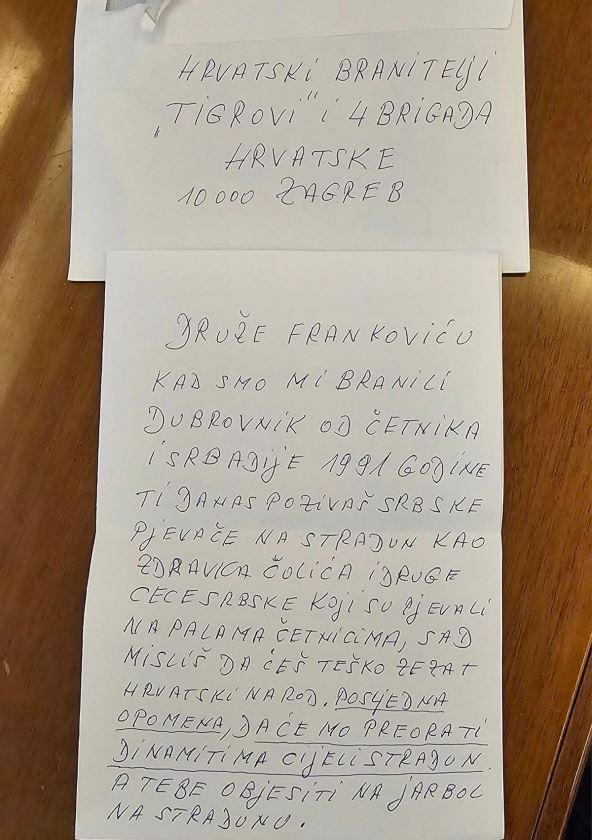 HRVATSKI BRANITELJI
„TIGROVI“ I 4 BRIGADA
HRVATSKE
10000 ZAGREB
DRUŽE FRANKOVIĆU
KAD SMO MI BRANILI
DUBROVNIK OD ČETNIKA
I SRBADIJE 1991 GODINE
TI DANAS POZIVAŠ SRBSKE
PJEVAČE NA STRADUN KAO
ZDRAVKA ČOLIĆA I DRUGE
CECE SRBSKE KOJI SU PJEVALI
NA PALAMA ČETNICIMA, SAD
MISLIŠ DA ĆEŠ TEŠKO ZEZAT
HRVATSKI NAROD. POSLJEDNA
OPOMENA, DA ĆE MO PREORATI
DINAMITIMA CIJELI STRADUN.
A TEBE OBJESITI NA JARBOL
NA STRADUNU.